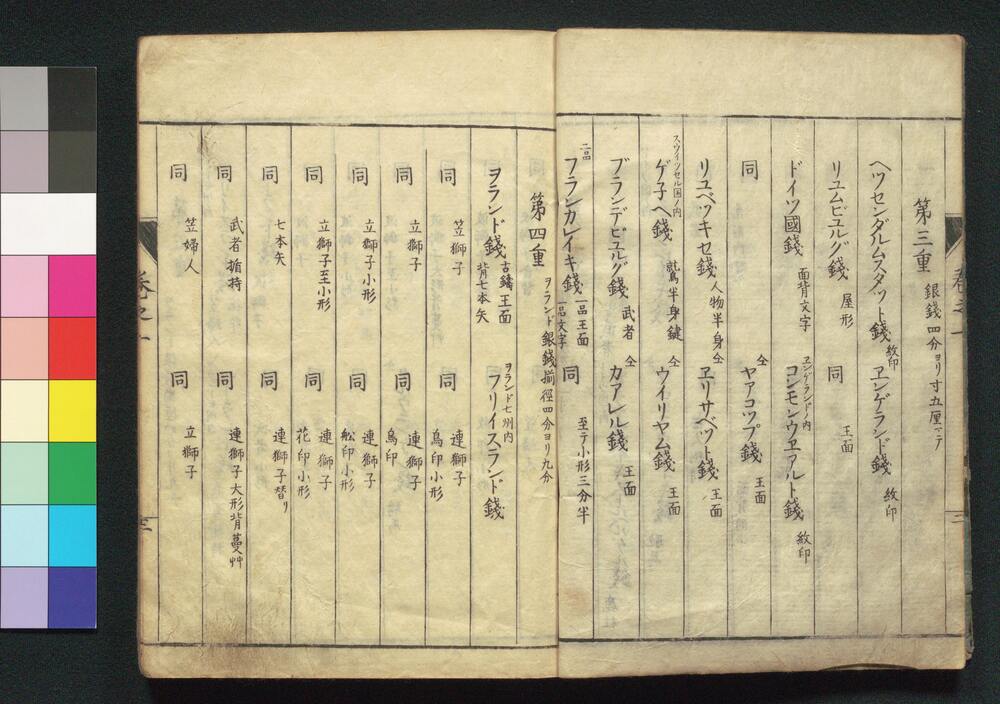 第三重 銀錢四分ヨリ寸五厘マテ
ヘツセンダルムスタット錢 紋印 ヱンゲランド錢 紋印
リユムビユルグ錢 屋形 同 王面
ドイツ國錢 面背文字 ヱンゲランドノ内 コンモンウヱアルト錢 紋印
同 仝 ヤアコツプ錢 王面
リユベツキセ錢 人物半身 仝 ヱリサベツト錢 王面
スウイツセル国ノ内 ゲ子ヘ錢 鷲半身鍵 仝 ウイリヤム錢 王面
ブランデビユルグ錢 武者 仝 カアレル錢 王面
二品 フランカレイキ錢 一品王面 一品文字 同 至テ小形三分半
第四重 ヲランド銀錢揃徑四分ヨリ九分
ヲランド錢 古鑄王面 背七本矢 ヲランド七州内 フリイスランド錢
同 笠獅子 同 連獅子 鳥印小形
同 立獅子 同 連獅子 鳥印
同 立獅子小形 同 連獅子 舩印小形
同 立獅子至小形 同 連獅子 花印小形
同 七本矢 同 連獅子替リ
同 武者楯持 同 連獅子大形背蔓艸
同 笠婦人 同 立獅子
卷之一
三